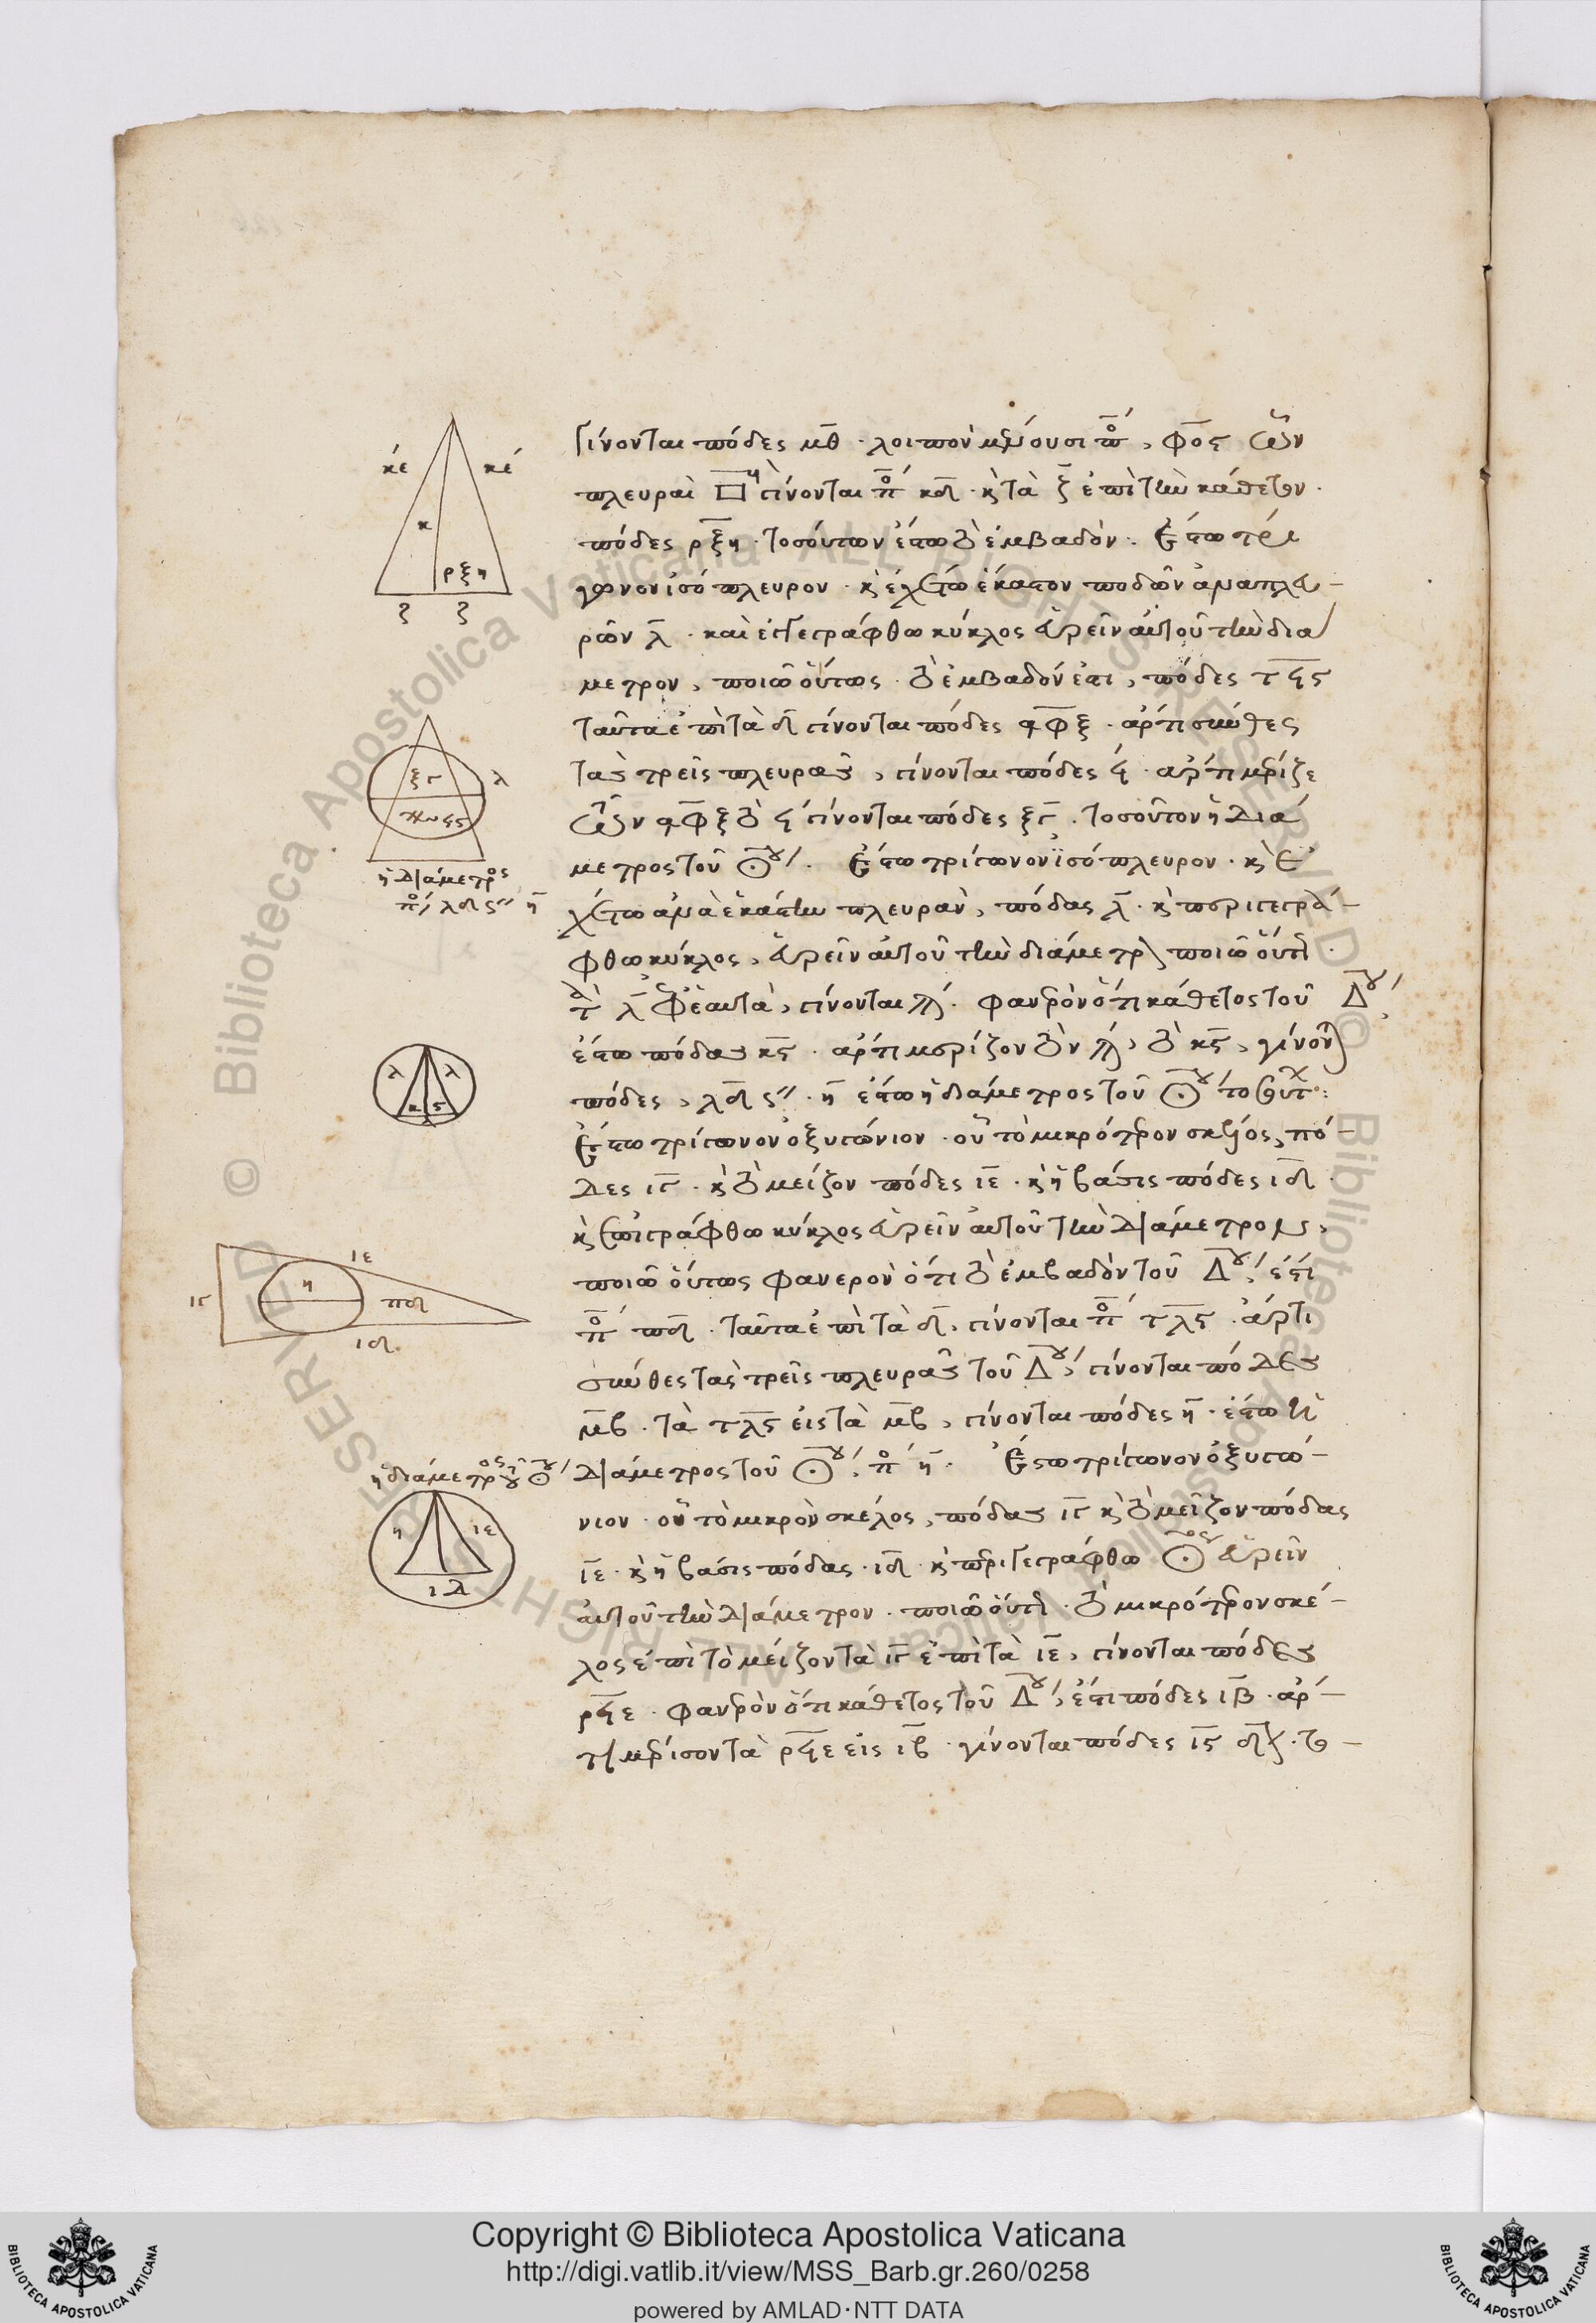 Γίνονται πόδες μθ · λοιπὸν μένουσι πό, φος ὧν
πλευρὰ □ γίνονται πό κδ · κ τὰ ζ ἐπὶ τὴν κάθετον ·
πόδες ρξη · τοσούτων ἔστω τὸ ἐμβαδόν · Ἔστω τρί
γωνον ἰσόπλευρον · κ ἐχέτω ἑκάστη ποδῶν ἀνὰ πλευ-
ρῶν λ · καὶ ἐγγεγράφθω κύκλος εὑρεῖν αὐτοῦ τὴν δια
μετρον, ποιῶ οὕτως · τὸ ἐμβαδόν ἐστι, πόδες τϟς
ταῦτα ἐπὶ τὰ δ γίνονται πόδες αφξ · ἄρτι σύνθες
τὰς τρεῖς πλευρὰς, γίνονται πόδες ϟ · ἄρτι μέριζε
ὧν αφξ τὸ ϟ γίνονται πόδες ξγ · τοσοῦτον ἡ διά
μετρος τοῦ ☉ου · Ἔστω τρίγωνον ἰσόπλευρον · κ ἐ
χέτω ἀνὰ ἑκάστην πλευρὰν, πόδας λ · κ περιγεγρά-
φθω κύκλος, εὑρεῖν αὐτοῦ τὴν διάμετρ ποιῶ οὕτ ·
λ ἐφ ἑαυτὰ, γίνονται ϡ · φανερὸν ὅτι κάθετος τοῦ Δου
ἔστω πόδας κς · ἄρτι μερίζον τὸν ϡ, τὸ κς, γίνον
πόδες, λδ ς″ · η ἔστω ἡ διάμετρος τοῦ ☉ου τοιουτ :
Ἔστω τρίγωνον ὀξυγώνιον · οὗ τὸ μικρότερον σκέλος, πό-
δες ιγ · κ τὸ μείζον πόδες ιε · κ ἡ βάσις πόδες ιδ ·
κ ἐπιγράφθω κύκλος εὑρεῖν αὐτοῦ τὴν διάμετρον,
ποιῶ οὕτως φανερὸν ὅτι τὸ ἐμβαδὸν τοῦ Δου, ἐστὶ
πό πδ · ταῦτα ἐπὶ τὰ δ, γίνονται πό τλς · ἄρτι
σύνθες τὰς τρεῖς πλευρὰς τοῦ Δου, γίνονται πόδες
μβ · τὰ τλς εἰς τὰ μβ, γίνονται πόδες η · ἔστω ἡ
διάμετρος τοῦ ☉ου, πό η · Ἔστω τρίγωνον ὀξυγώ-
νιον · οὗ τὸ μικρὸν σκέλος, πόδας ιγ κ τὸ μεῖζον πόδας
ιε · κ ἡ βάσις πόδας · ιδ · κ περιγεγράφθω ☉ος εὑρεῖν
αὐτοῦ τὴν διάμετρον · ποιῶ οὕτ · τὸ μικρότερον σκέ-
λος ἐπὶ τὸ μείζον τὰ ιγ ἐπὶ τὰ ιε, γίνονται πόδες
ρϟε · φανερὸν ὅτι κάθετος τοῦ Δου, ἐστι πόδες ιβ · ἄρ-
τι μέρισον τὰ ρϟε εἰς ιβ · γίνονται πόδες ις δ
κε κε
κ
ρξη
ζ ζ
ξγ λ
ἡ διάμετρος
πό, λδ ς″ η
λ λ
κς
ιε
ιγ η πδ
ιδ
ἡ διάμετρος τοῦ ☉ου
η ιε
ιδ
Copyright © Biblioteca Apostolica Vaticana
http://digi.vatlib.it/view/MSS_Barb.gr.260/0258
powered by AMLAD·NTT DATA
BIBLIOTECA APOSTOLICA VATICANA
BIBLIOTECA APOSTOLICA VATICANA
© Biblioteca Apostolica Vaticana ALL RIGHTS RESERVED
© Biblioteca Apostolica Vaticana ALL RIGHTS RESERVED